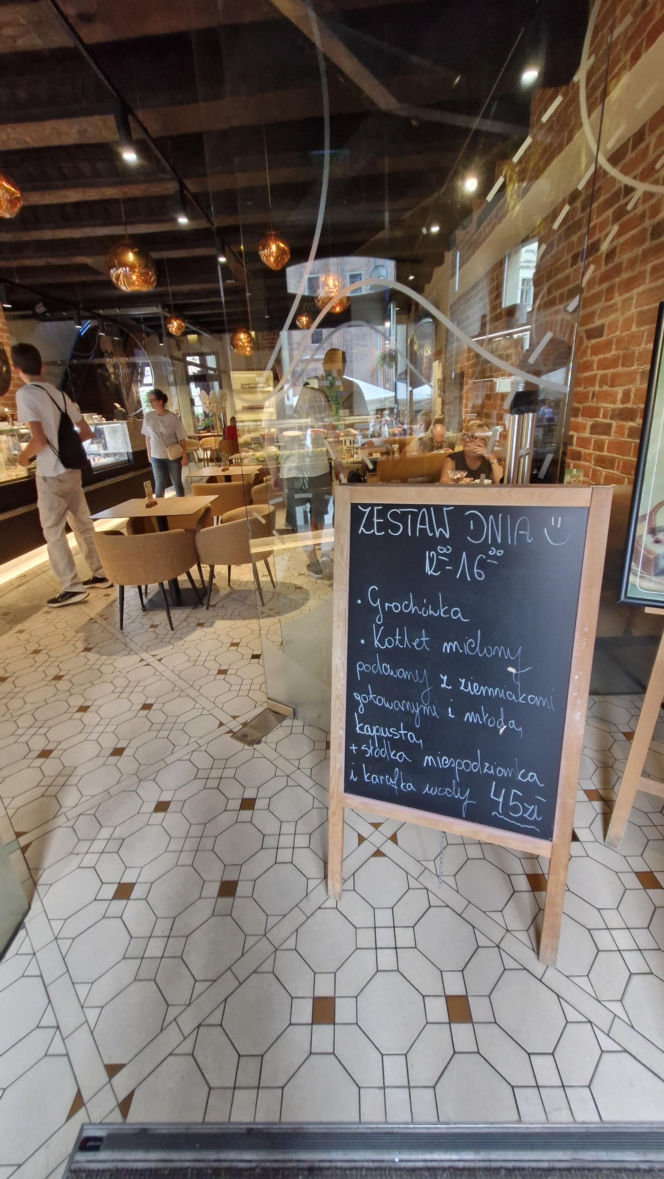 ZESTAW DNIA
12⁰⁰-16⁰⁰
• Grochówka
• Kotlet mielony
podawany z ziemniakami
gotowanymi i młodą
kapustą,
+ słodka niespodzianka
i karafka wody 45zł